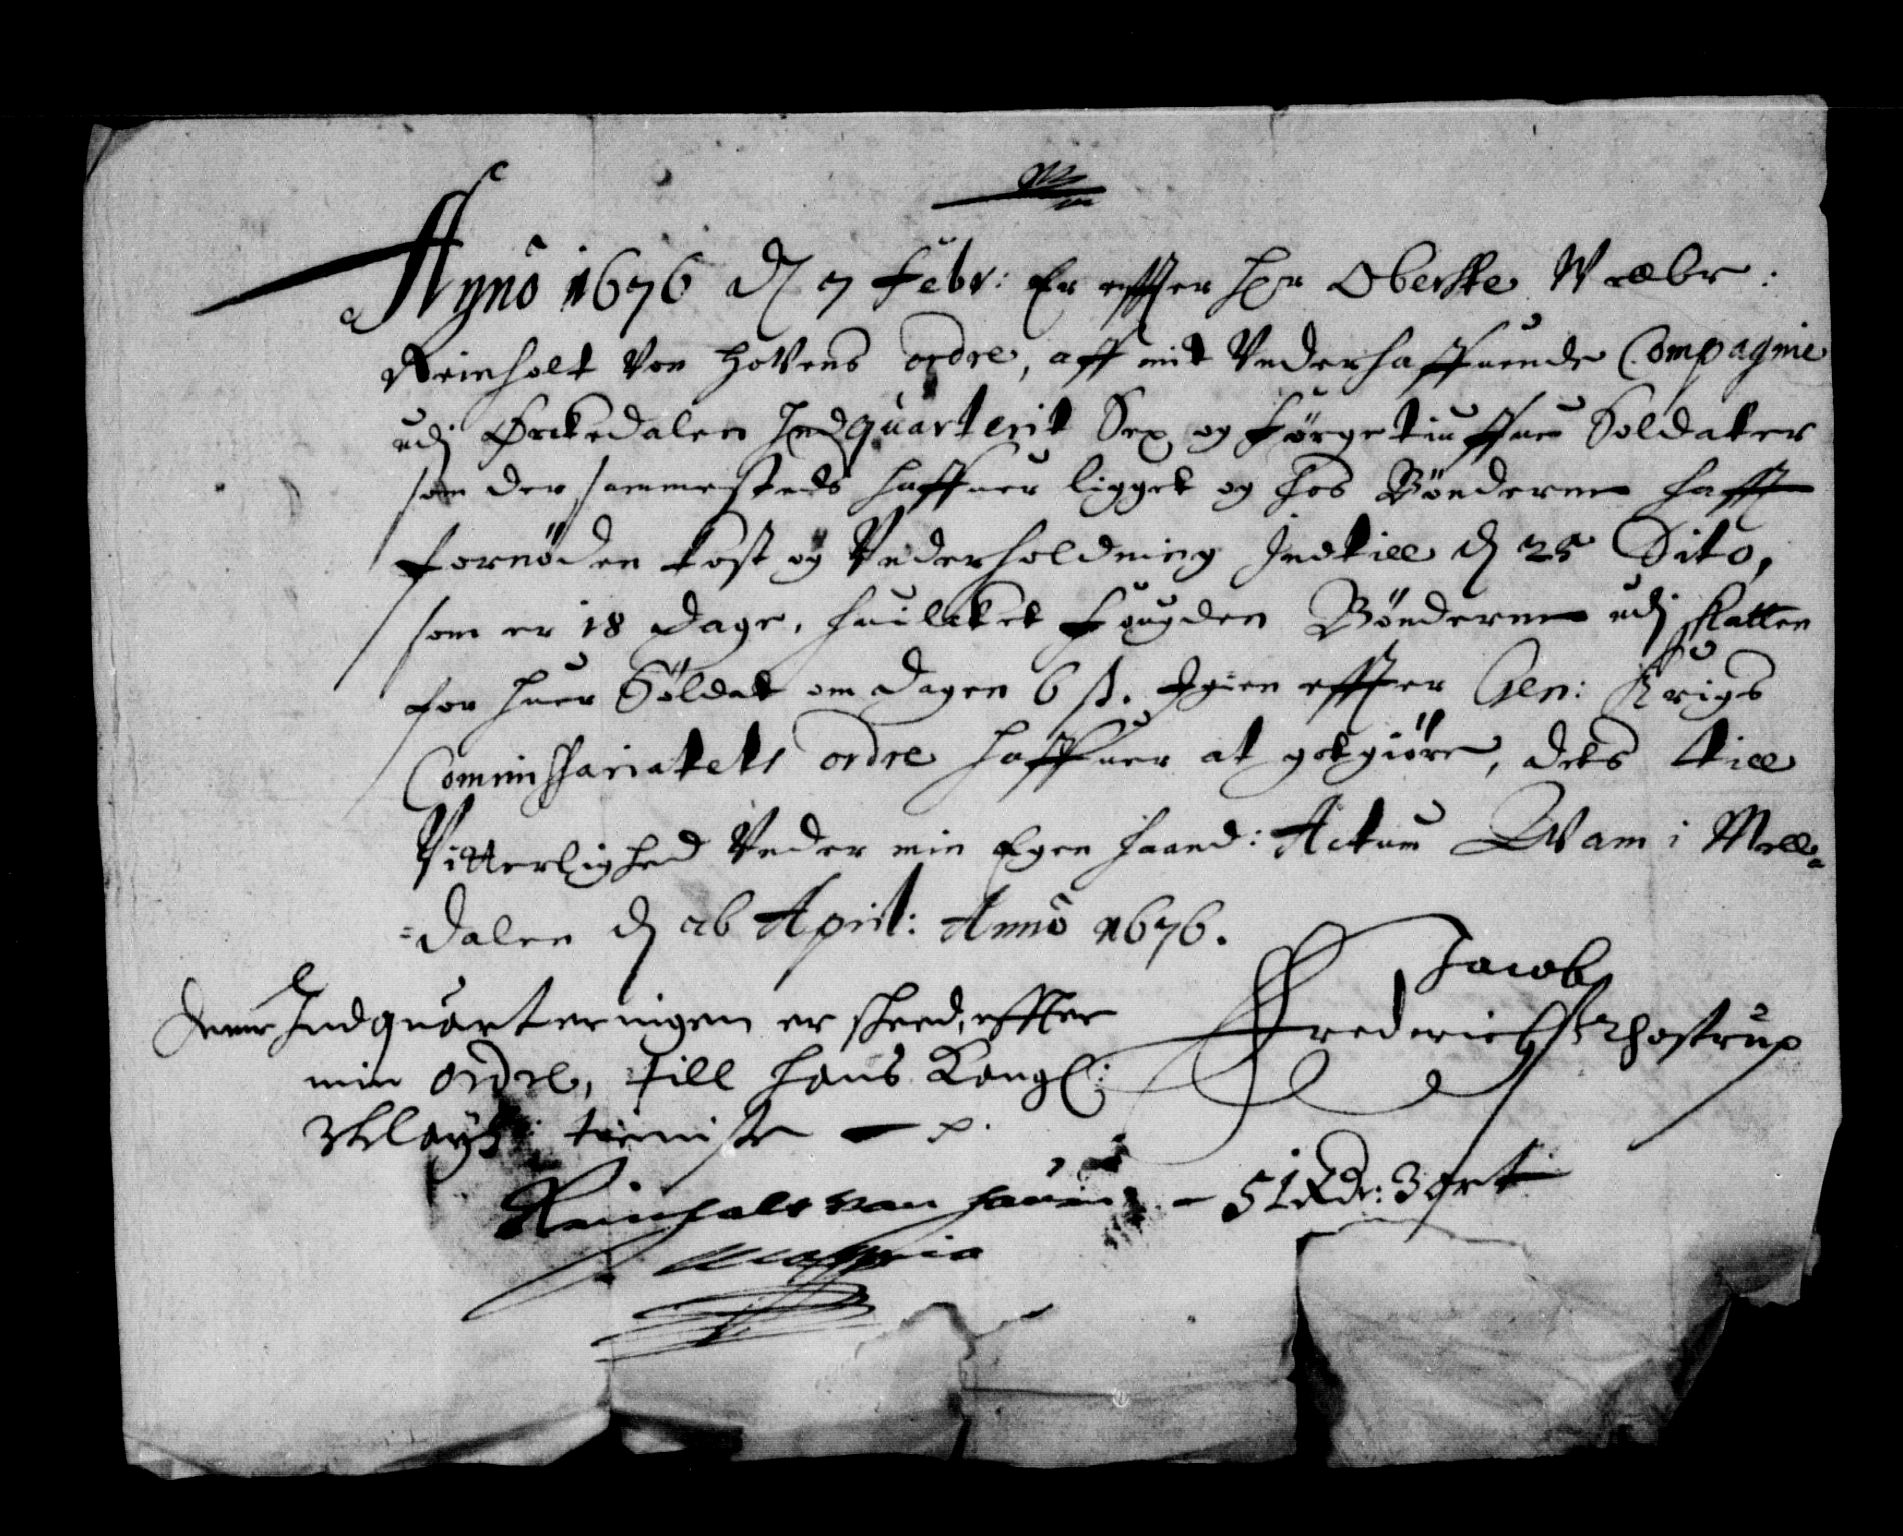 Anno 1676 d 7 Febr: Er effter Hr Oberste Welbr:
Reinholt Von Hovens ordre, aff mit Vnderhaffuende Compagnie
udj Ørkedalen Indquarterit Sex og Førgetiuffue Soldater
som der sammesteds haffuer ligget og hos Bønderne hafft
fornøden kost og Vnderholdning Indtill d 25 Dito,
som er 18 Dage, huilcket Fougden Bønderne udj skatten
for huer Soldat om dagen 6 ß. Igien effter Gen: Krigs
Commissariatets ordre haffuer at gotgiøre, dets till
Vitterlighed Vnder min Egen haand: Actum Wam i Mell-
=dalen d 26 April: Anno 1676.
Jacob
Frederichs Rhostrup
denne Indquarteringen er skeed, effter
min ordre, till hans Kongl:
May tt tieniste
Reinholt van Hauen
51 Rdr: 3 ort